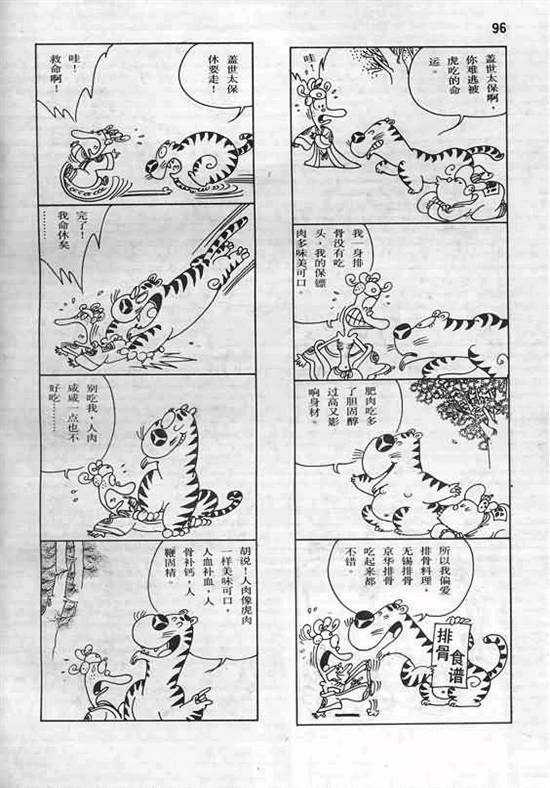 96
盖世太保啊，
你难逃被
虎吃的命
运。
哇！
我一身排
骨没有吃
头，我的保镖
肉多味美可口。
肥肉吃多
了胆固醇
过高又影
响身材。
所以我偏爱
排骨料理，
无锡排骨
京华排骨
吃起来都
不错。
排骨
食谱
盖世太保
休要走！
哇！
救命啊！
完了！
我命休矣
……
别吃我，人肉
咸咸一点也不
好吃……
胡说！人肉像虎肉
一样美味可口，
人血补血，人
骨补钙，人
鞭固精。